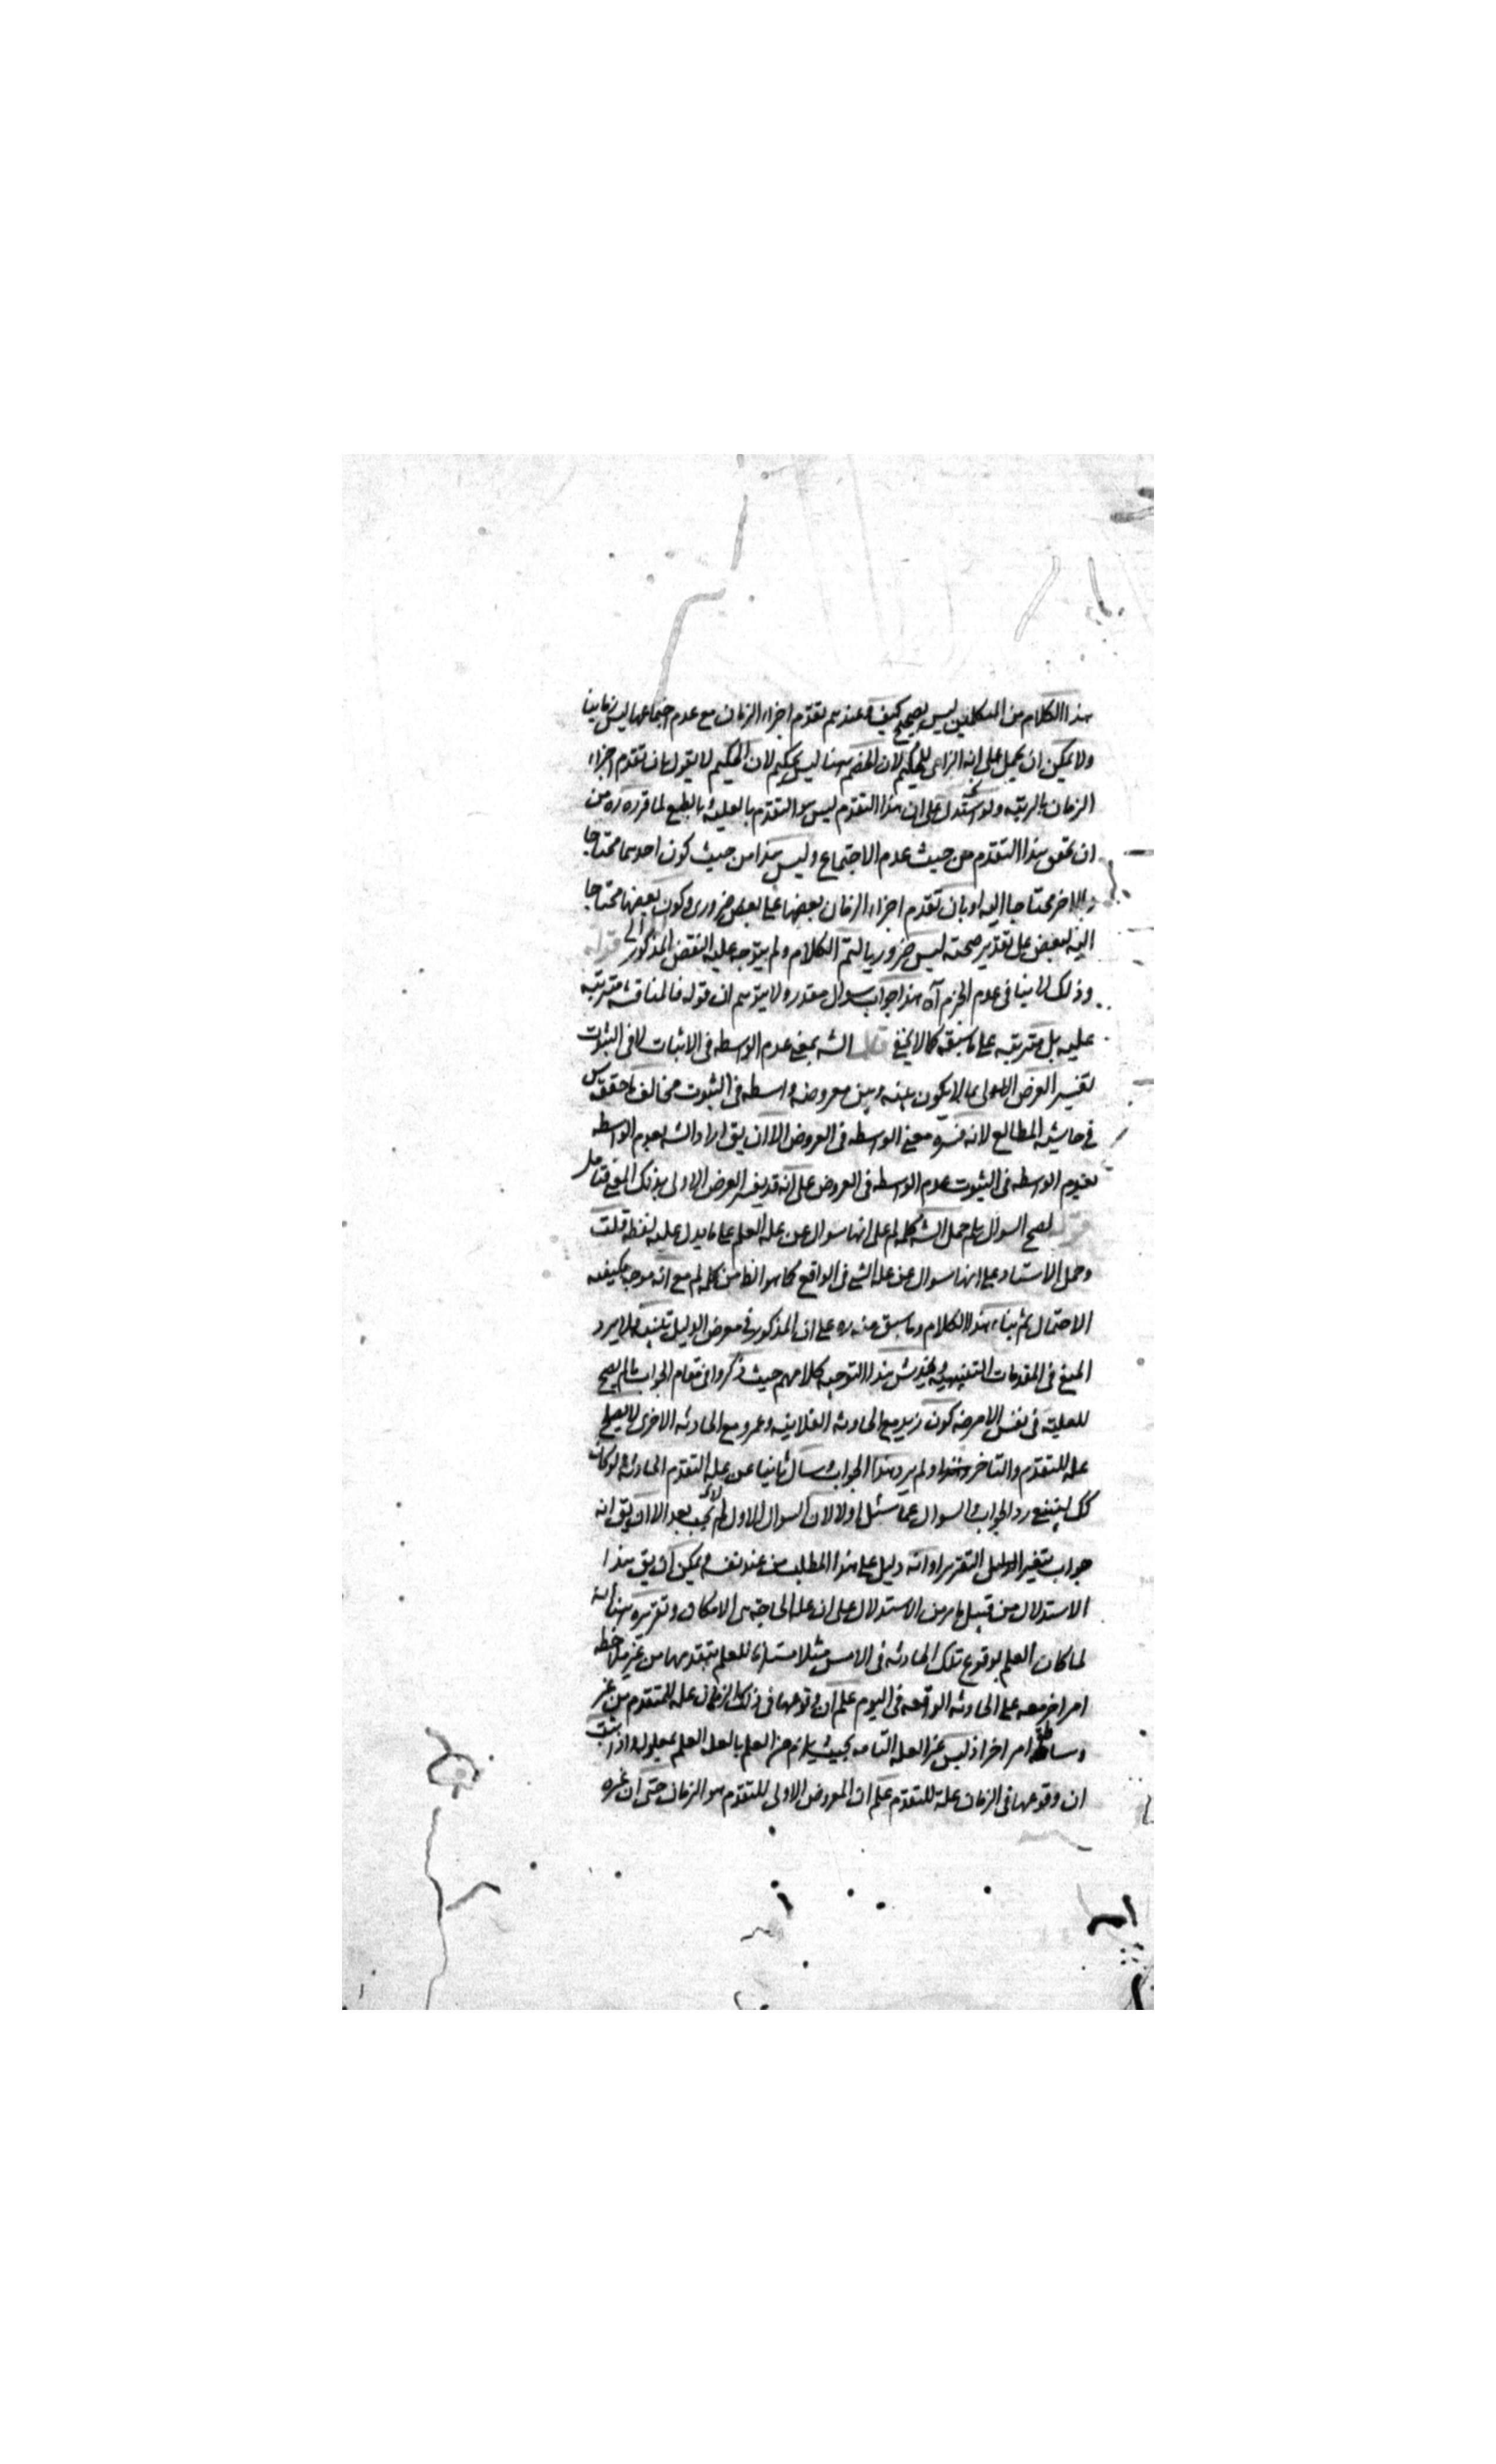 هذا الكلام من المتكلمين ليس بصحيح كيف وعندهم تقدم اجزاء الزمان مع عدم اجتماعها ليس زمانيا
ولا يمكن ان يحمل على انه الزامى للحكيم لان الخصم هنا ليس بحكيم لان الحكيم لا يقول بان تقدم اجزاء
الزمان بالرتبه ولو استدل على ان هذا التقدم ليس هو التقدم بالعليه بالطبع لما قرره ره من
ان تحقق هذا التقدم من حيث عدم الاجتماع وليس هذا من حيث كون احدهما محتاجا
والاخر محتاجا اليه او بان تقدم اجزاء الزمان بعضها على بعض ضرورى وكون بعضها محتاجا
اليه لبعض على تقدير صحته ليس ضروريا لتم الكلام ولم يتوجه عليه النقض المذكور قوله
وذلك لا ينافى عدم الجزم آه هذا جواب سوال مقدر ولا يتوهم ان قوله فالمناقشه مترتبه
عليه بل مترتبه على ما سبقه كما لا يخفى قال الشه بمعنى عدم الواسطه فى الاثبات لا فى الثبوت
تفسير العرض الاولى بما لا يكون بينه وبين معروضه واسطه فى الثبوت مخالف لما حققه
فى حاشيه المطالع لانه فسره بمعنى الواسطه فى العروض الا ان يق اراد الشه بعدم الواسطه
بعدم الواسطه فى الثبوت عدم الواسطه فى العروض على انه قد يفسر العرض الاولى بذلك المعنى فتامل
قوله لصح السوال بلم حمل الشه كلمه لم على انها سوال عن عله العلم على ما يدل عليه لفظه قلت
وحمل الاستاد على انها سوال عن عله الشى فى الواقع كما هو الظا من كلمه لم مع انه موجه يكفيه
الاحتمال ثم بناء هذا الكلام وما سبق منه ره على ان المذكور فى معرض الدليل تنبيه فلا يرد
المنع فى المقدمات التنبيهيه ويخدش هذا التوجيه كلامهم حيث ذكروا فى مقام الجواب ما لم يصح
للعليه فى نفس الامر ضه كون زيد مع الحادثه الفلانيه وعمرو مع الحادثه الاخرى لا يصلح
عله للتقدم والتاخر ولم يرد هذا الجواب وسال ثانيا عن عله التقدم الحادثه ولو كان
كك لينبغى رد الجواب والسوال عما سئل اولا لان السوال الاول لم يجب بعد الا ان يق انه
جواب بتغيير الدليل التقرير او انه دليل على هذا المطلب من عند نفسه ويمكن ان يق هذا
الاستدلال من قبيل ما مر من الاستدلال على ان عله الحاجه هى الامكان وتقريره هنا انه
لما كان العلم بوقوع تلك الحادثه فى الامس مثلا مستلزما للعلم بتقدمها من غير ملاحظه
امر اخر معه على الحادثه الواقعه فى اليوم علم ان وقوعها فى ذلك الزمان عله للتقدم من غير
وساطه امر اخر اذ ليس غير العله التامه بحيث يلزم من العلم بالعله العلم بمعلوله واذا ثبت
ان وقوعها فى الزمان علة للتقدم علم ان المعروض الاولى للتقدم هو الزمان حتى ان غيره